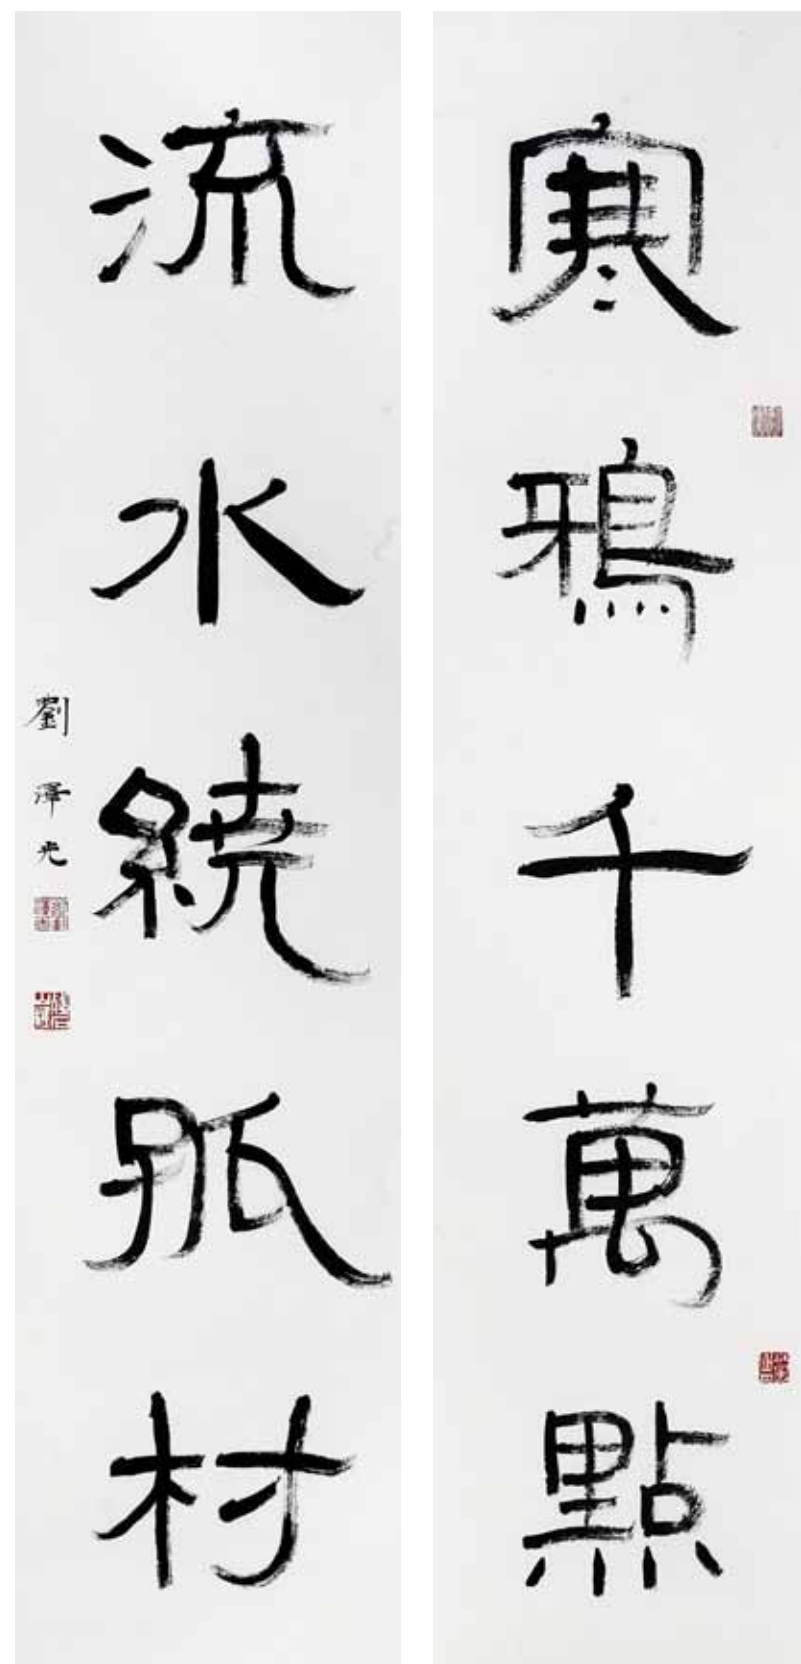 寒鴉千萬點
流水繞孤村
劉澤光